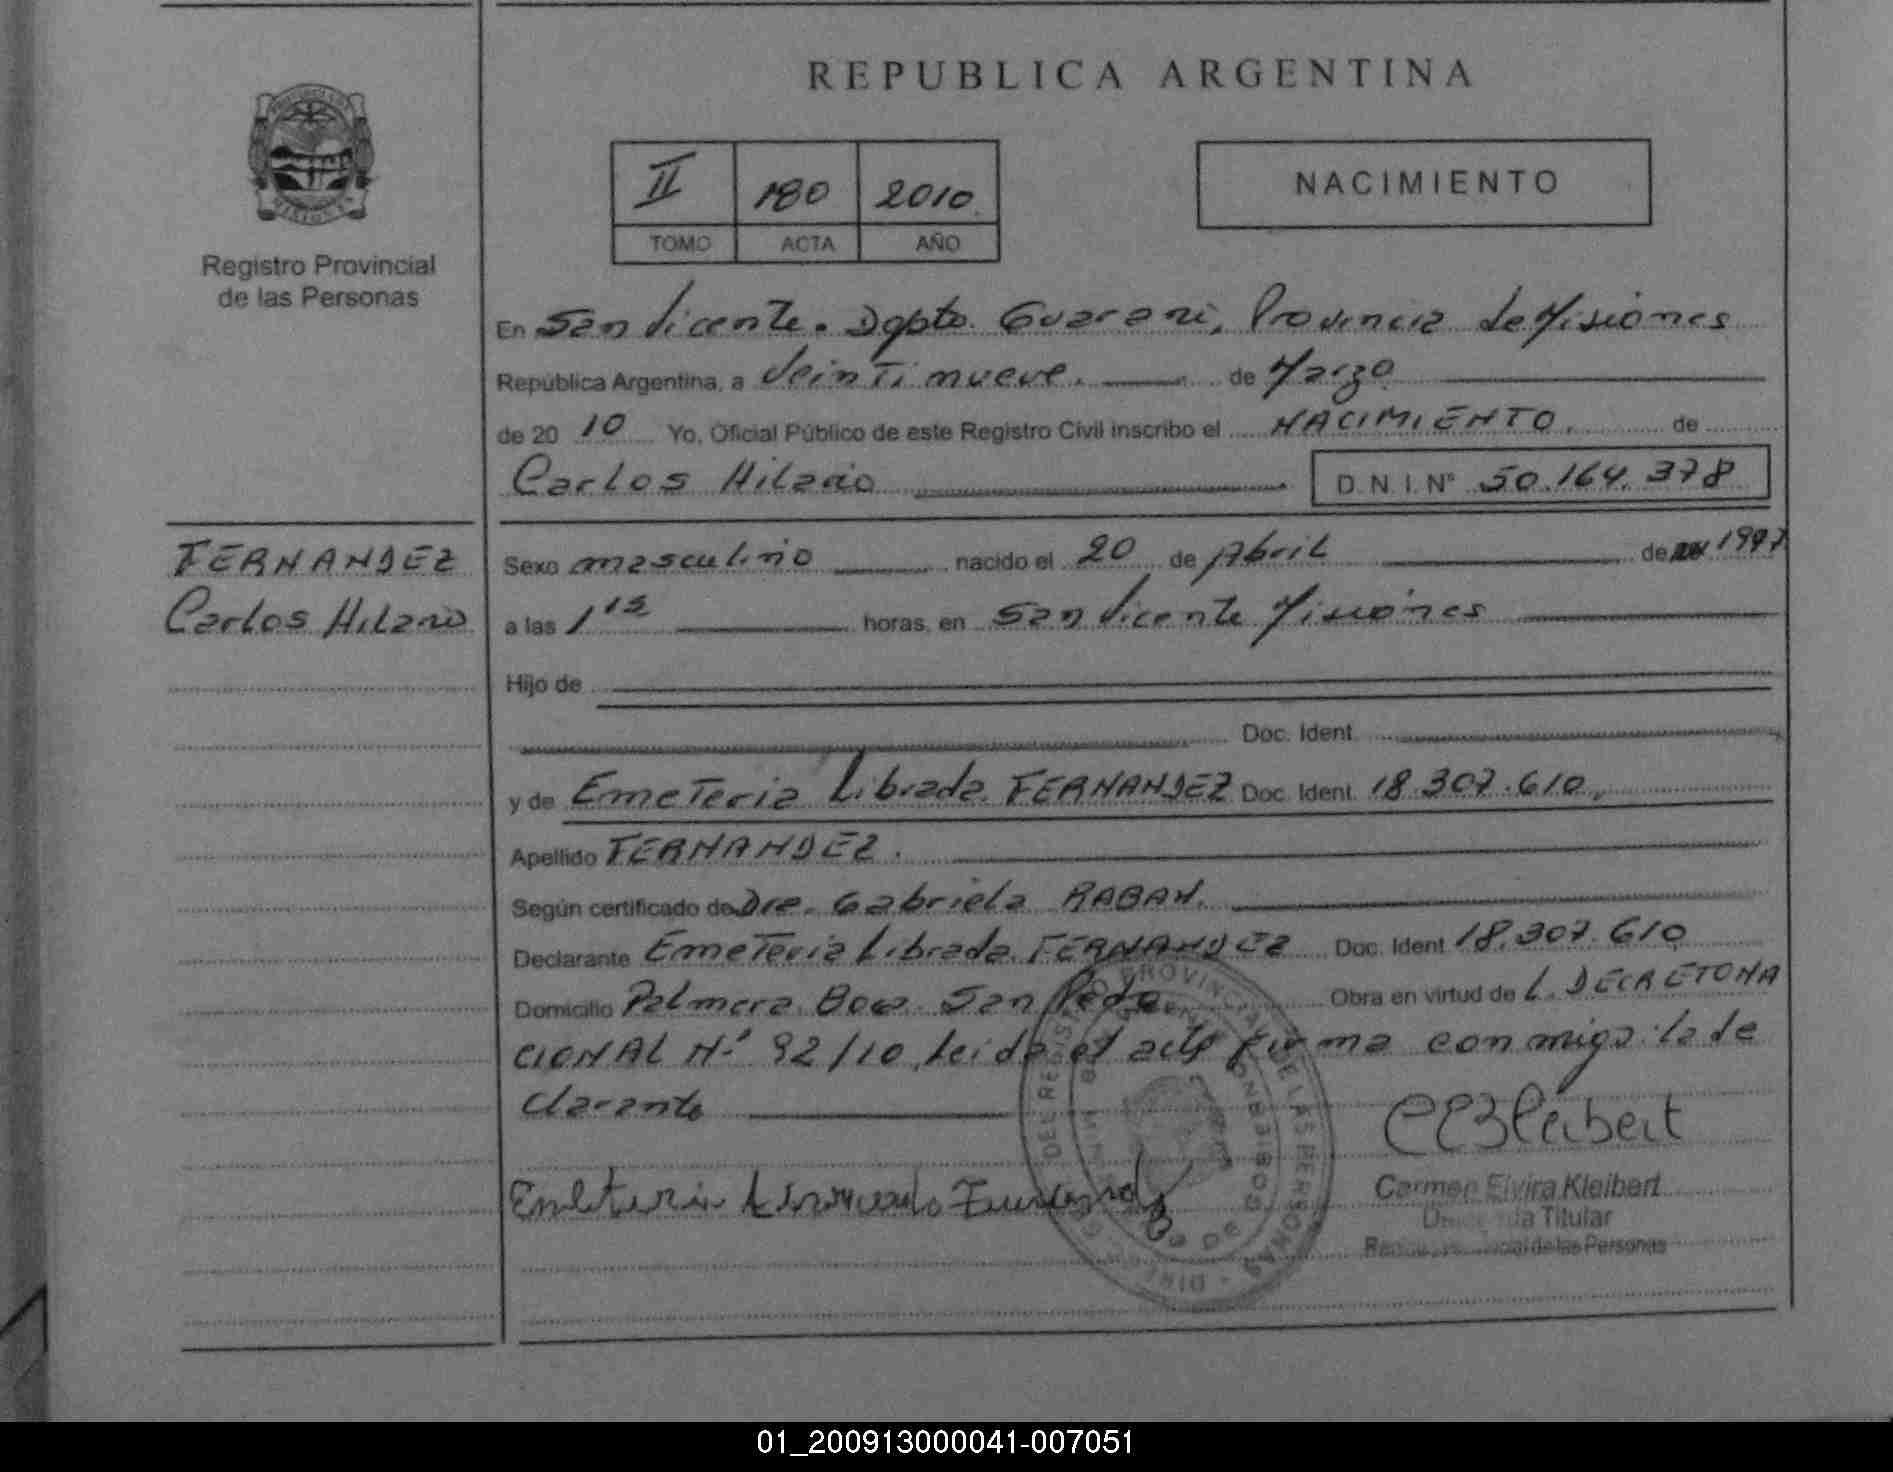 REPUBLICA ARGENTINA
Registro Provincial
de las Personas
II 180 2010
TOMO ACTA AÑO
NACIMIENTO
En San Vicente. Depto. Guarani, Provincia de Misiones
República Argentina, a Veintinueve. de Marzo
de 20 10 Yo, Oficial Público de este Registro Civil inscribo el NACIMIENTO. de
Carlos Hilario D.N.I. Nº 50.164.378
FERNANDEZ
Carlos Hilario
Sexo masculino nacido el 20 de Abril de 1997
a las 1 15 horas, en San Vicente Misiones
Hijo de
Doc. Ident.
y de Emeteria Librada FERNANDEZ Doc. Ident. 18.307.610.
Apellido FERNANDEZ.
Según certificado de Dra. Gabriela RABAN.
Declarante Emeteria Librada FERNANDEZ Doc. Ident. 18.307.610
Domicilio Palmera Boca San Pedro Obra en virtud de L. DECRETO NA
CIONAL Nº 92/10, leida el acta firma conmigo: la de
clarante
Carmen Elvira Kleibert
Titular
de las Personas
01_200913000041-007051